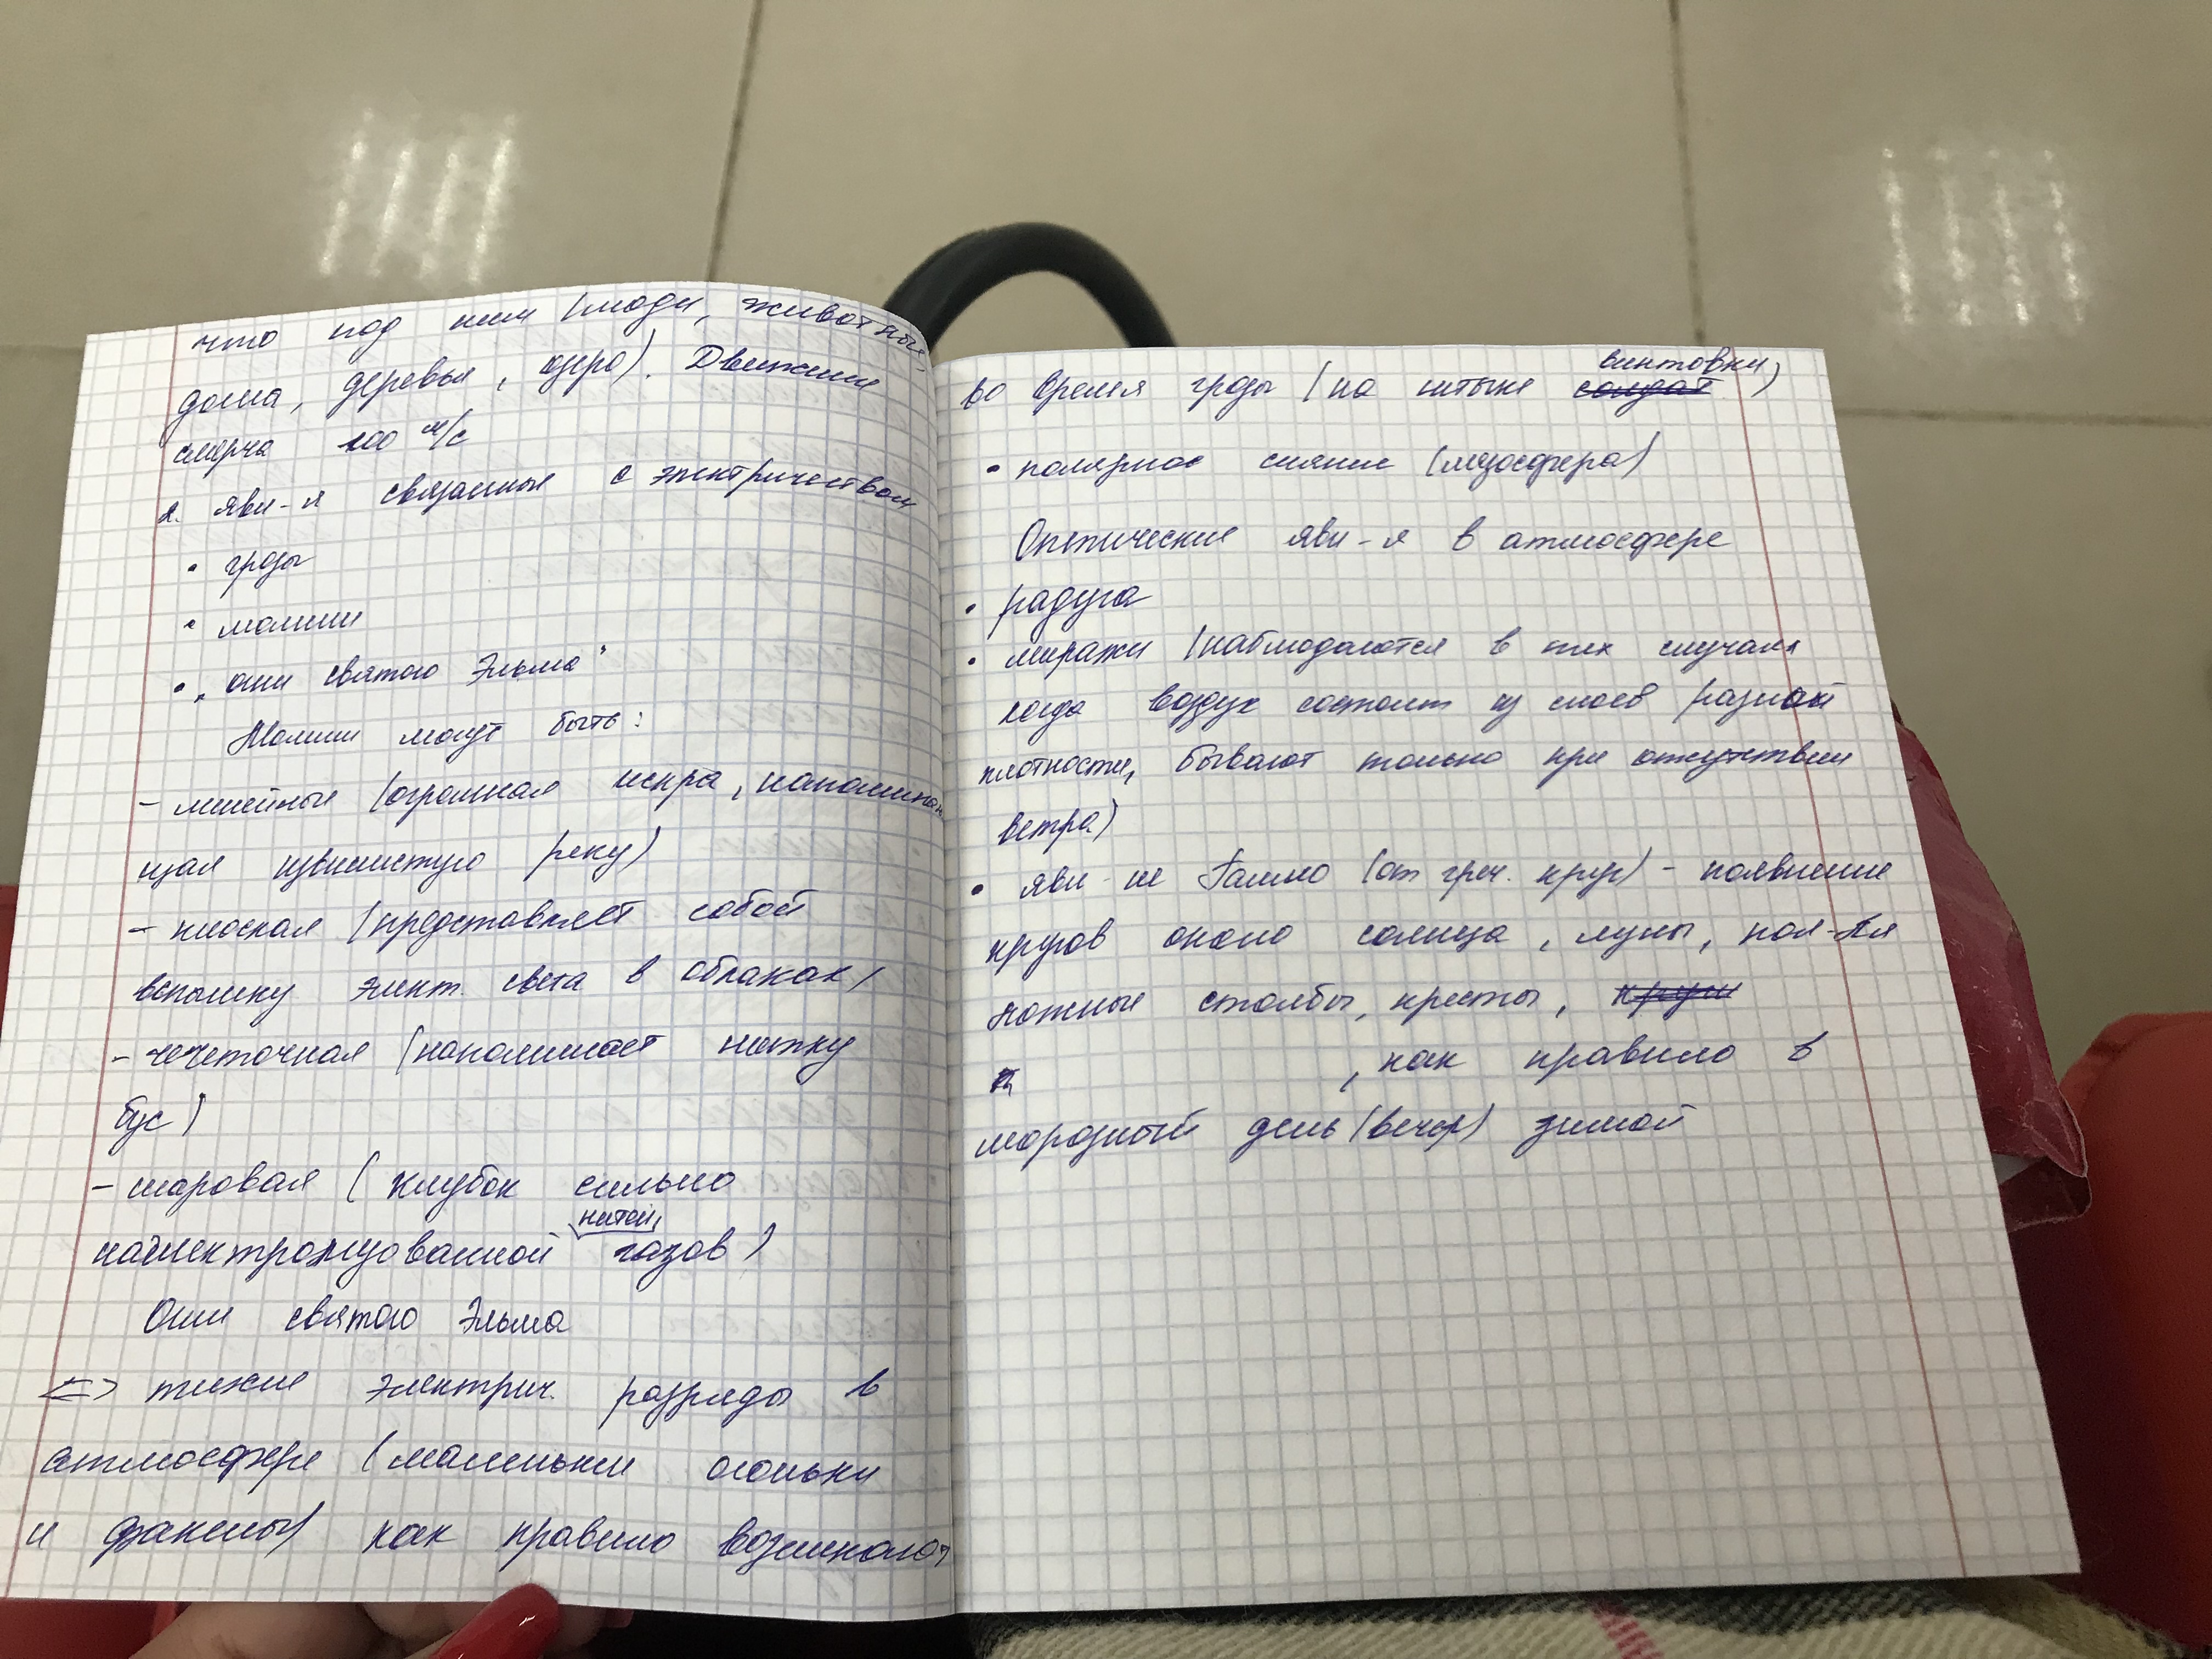 что под ним (люди, животные,
дома, деревья, озёра). Движение
смерча 100 м/с
2. явл-я связанные с электричеством
• грозы
• молнии
• „огни святого Эльма"
Молнии могут быть:
- линейные (огромная искра, напоминаю
щая извилистую реку)
- плоская (представляет собой
вспышку элект. света в облаках)
- чёточная (напоминает нитку
бус)
- шаровая (клубок сильно
нитей,
наэлектролизованной газов)
Огни святого Эльма
<=> тихие электрич. разряды в
атмосфере (маленькие огоньки
и факелы) как правило возникают
винтовки)
во время грозы (на штыке солдат
• полярное сияние (мезосфера)
Оптические явл-я в атмосфере
• радуга
• миражи (наблюдаются в тех случаях
когда воздух состоит из слоёв разной
плотности, бывают только при отсутствии
ветра)
• явл-ие Галло (от греч. круг) - появление
кругов около солнца, луны, поя-ля
ложные столбы, кресты, круги
, как правило в
морозный день (вечер) зимой